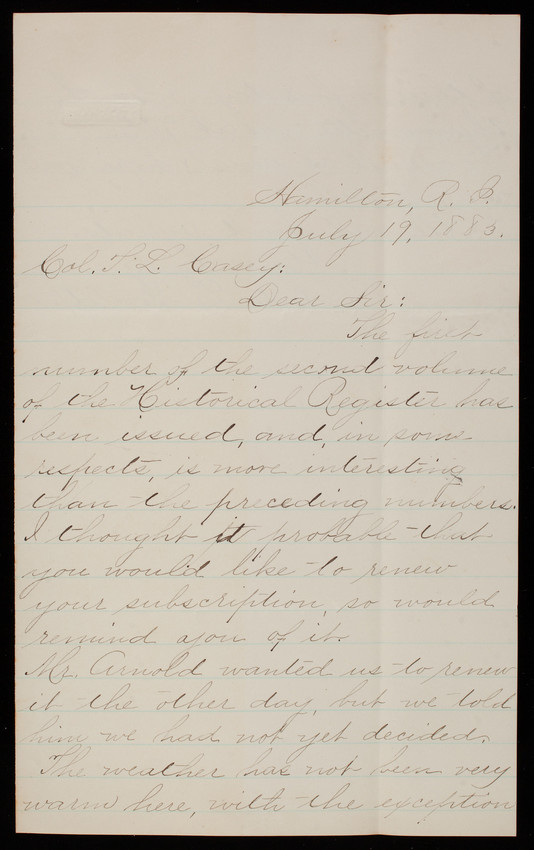 Hamilton, R. I.
July 19, 1883.
Col. T. L. Casey:
Dear Sir:
The first
number of the second volume
of the Historical Register has
been issued, and, in some
respects, is more interesting
than the preceding numbers.
I thought it probable that
you would like to renew
your subscription, so would
remind you of it.
Mr. Arnold wanted us to renew
it the other day, but we told
him we had not yet decided.
The weather has not been very
warm here, with the exception